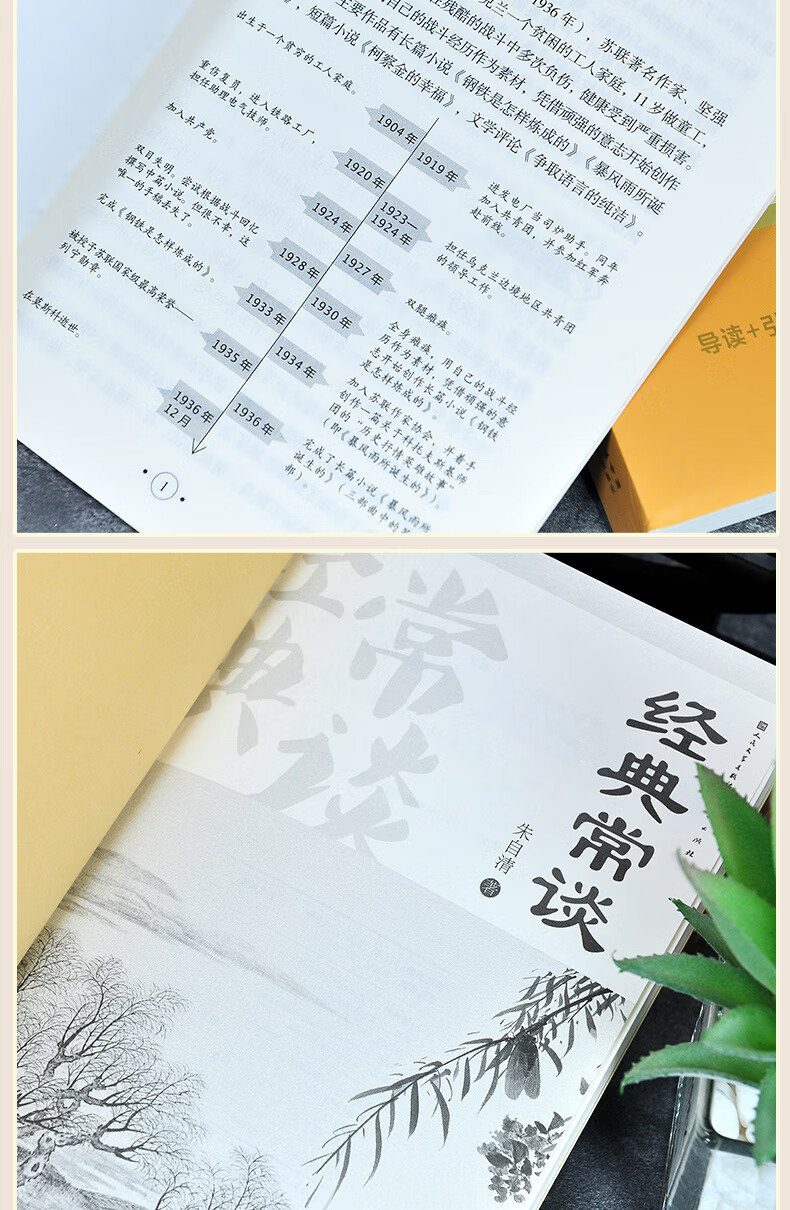 1936年），苏联著名作家、坚强
克兰一个贫困的工人家庭，11岁做童工，
在残酷的战斗中多次负伤，健康受到严重损害。
自己的战斗经历作为素材，凭借顽强的意志开始创作
主要作品有长篇小说《钢铁是怎样炼成的》《暴风雨所诞
》，短篇小说《柯察金的幸福》，文学评论《争取语言的纯洁》。
出生于一个贫穷的工人家庭。
1904年
1919年
进发电厂当司炉助手。同年
加入共青团，并参加红军奔
赴前线。
重伤复员，进入铁路工厂，
担任助理电气技师。
1920年
1923—
1924年
担任乌克兰边境地区共青团
的领导工作。
加入共产党。
1924年
1927年
双腿瘫痪。
双目失明。尝试根据战斗回忆
撰写中篇小说。但很不幸，这
唯一的手稿丢失了。
1928年
1930年
全身瘫痪，用自己的战斗经
历作为素材，凭借顽强的意
志开始创作长篇小说《钢铁
是怎样炼成的》。
完成《钢铁是怎样炼成的》。
1933年
1934年
加入苏联作家协会，并着手
创作一篇关于科托夫斯基师
团的“历史抒情英雄故事”
（即《暴风雨所诞生的》）。
被授予苏联国家级最高荣誉——
列宁勋章。
1935年
1936年
完成了长篇小说《暴风雨所
诞生的》（三部曲中的第
部）。
在莫斯科逝世。
1936年
12月
1
导读+
经典常谈
经典常谈
朱自清 著